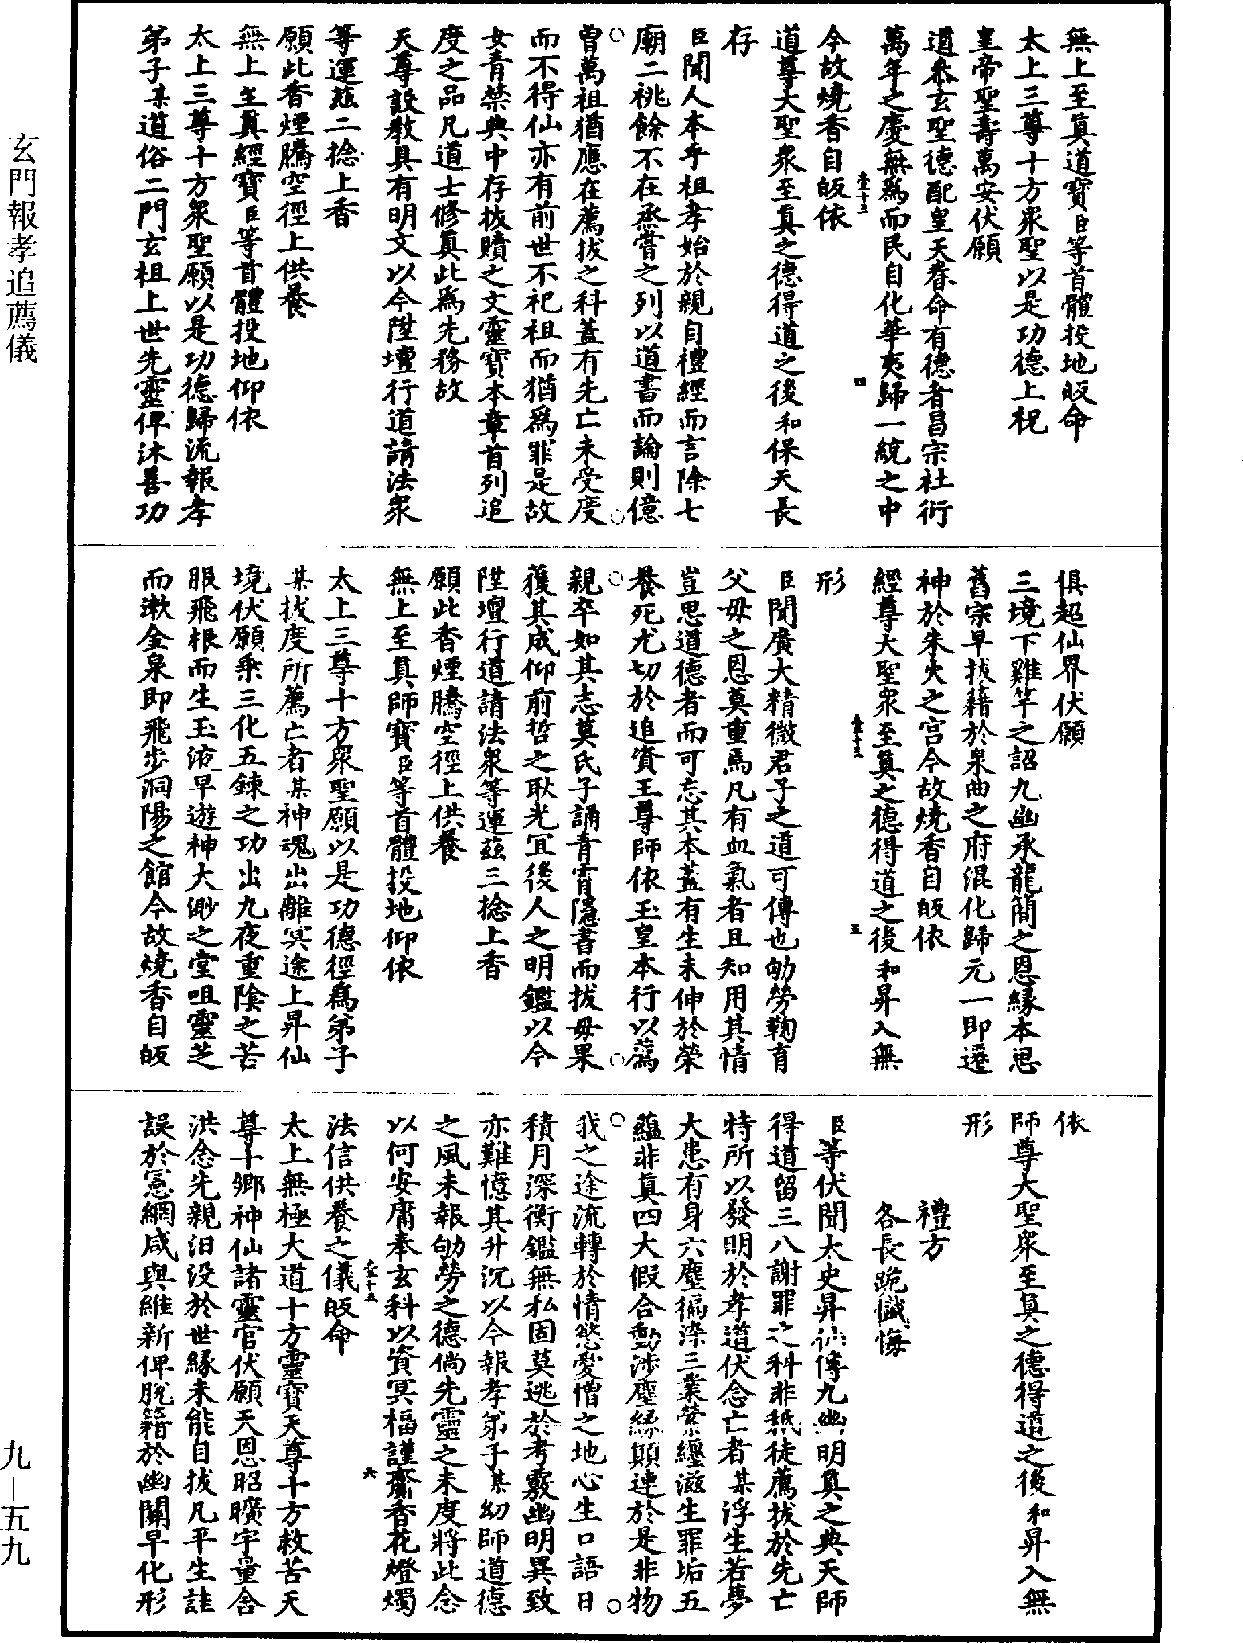 無上至真道寶臣等首體投地皈命
太上三尊十方衆聖以是功德上祝
皇帝聖壽萬安伏願
道叅玄聖德配皇天眷命有德者昌宗社衍
萬年之慶無為而民自化華夷歸一統之中
今故燒香自皈依
道尊大聖衆至真之德得道之後和保天長
存
臣聞人本乎祖孝始於親自禮經而言除七
廟二祧餘不在烝嘗之列以道書而論則億
曾萬祖猶應在薦拔之科蓋有先亡未受度
而不得仙亦有前世不祀祖而猶為罪是故
女青禁典中存拔贖之文靈寶本章首列追
度之品凡道士修真此為先務故
天尊設教具有明文以今陞壇行道請法衆
等運茲二捻上香
願此香煙騰空徑上供養
無上至真經寶臣等首體投地仰依
太上三尊十方衆聖願以是功德歸流報孝
弟子某道俗二門玄祖上世先靈俾沐善功
俱超仙界伏願
三境下雞竿之詔九幽承龍簡之恩緣本思
舊宗早拔籍於泉曲之府混化歸元一即遷
神於朱火之宮今故燒香自皈依
經尊大聖衆至真之德得道之後和昇入無
形
臣聞廣大精微君子之道可傳也劬勞鞠育
父母之恩莫重焉凡有血氣者且知用其情
豈思道德者而可忘其本蓋有生未伸於榮
養死尤切於追資王尊師依玉皇本行以薦
親卒如其志莫氏子誦青霄隱書而拔母果
獲其成仰前哲之耿光冝後人之明鑑以今
陞壇行道請法衆等運茲三捻上香
願此香煙騰空徑上供養
無上至真師寶臣等首體投地仰依
太上三尊十方衆聖願以是功德徑為弟子
某拔度所薦亡者某神魂出離冥途上昇仙
境伏願乘三化五鍊之功出九夜重陰之苦
服飛根而生玉液早遊神大渺之堂咀靈芝
而漱金泉即飛步洞陽之館今故燒香自皈
依
師尊大聖衆至真之德得道之後和昇入無
形
禮方
各長跪懺悔
臣等伏聞太史昇仙傳九幽明真之典天師
得道留三八謝罪之科非秪徒薦拔於先亡
特所以發明於孝道伏念亡者某浮生若夢
大患有身六塵徧染三業縈纏滋生罪垢五
蘊非真四大假合動涉塵緣顛連於是非物
我之途流轉於情慾愛憎之地心生口語日
積月深衡鑑無私固莫逃於考覈幽明異致
亦難憶其升沉以今報孝弟子某幼師道德
之風未報劬勞之德倘先靈之未度將此念
以何安庸奉玄科以資冥福謹齋香花燈燭
法信供養之儀皈命
太上無極大道十方靈寶天尊十方救苦天
尊十鄉神仙諸靈官伏願天恩昭曠宇量含
洪念先親汨没於世緣未能自拔凡平生詿
誤於憲網咸與維新俾脫籍於幽關早化形
玄門報孝追薦儀
九—五九